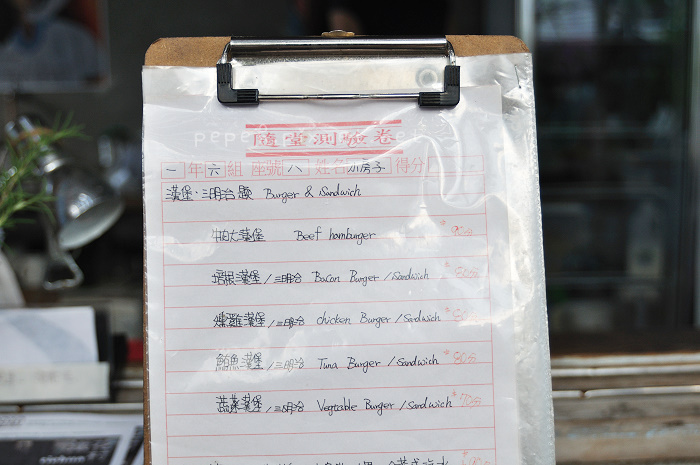 隨堂測驗卷
一年六組 座號八 姓名小房子 得分
漢堡·三明治類 Burger & Sandwich
牛肉大漢堡 Beef hamburger 90分
培根漢堡/三明治 Bacon Burger / Sandwich
燻雞漢堡/三明治 chicken Burger / Sandwich
鮪魚漢堡/三明治 Tuna Burger / Sandwich 80分
蔬菜漢堡/三明治 Vegtable Burger / Sandwich 70分